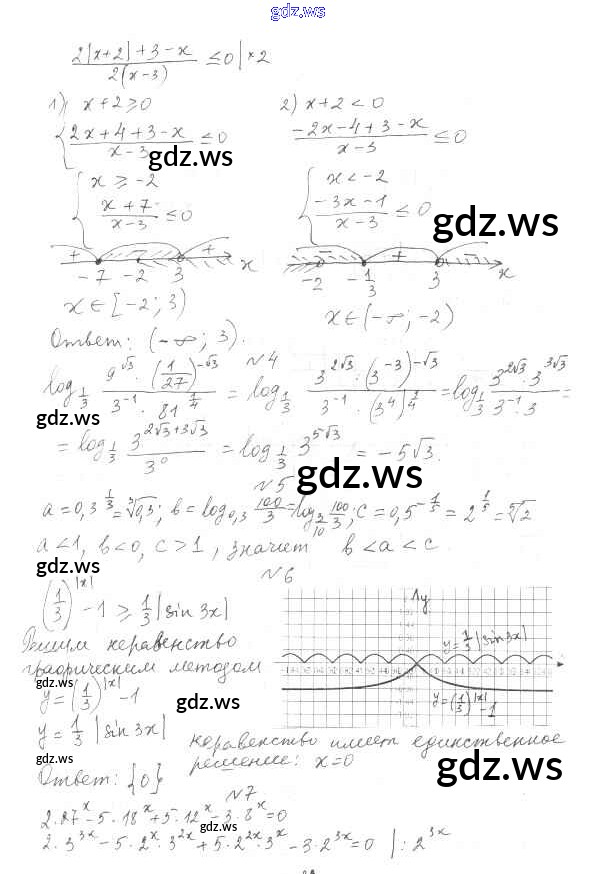 gdz.ws
(2|x+2|+3-x)/(2(x-3)) ≤ 0 | *2
1) x+2≥0
{(2x+4+3-x)/(x-3) ≤ 0
{x ≥ -2
(x+7)/(x-3) ≤ 0
+ + -7 -2 3 x
x∈[-2; 3)
2) x+2<0
(-2x-4+3-x)/(x-3) ≤ 0
{x<-2
(-3x-1)/(x-3) ≤ 0
- + - -2 -1/3 3 x
x∈(-∞; -2)
gdz.ws
gdz.ws
Ответ: (-∞; 3).
№4
log_{1/3} (9^{√3}·(1/27)^{-√3})/(3^{-1}·81^{1/4}) = log_{1/3} (3^{2√3}·(3^{-3})^{-√3})/(3^{-1}·(3^4)^{1/4}) = log_{1/3} (3^{2√3}·3^{3√3})/(3^{-1}·3) =
gdz.ws
= log_{1/3} 3^{2√3+3√3}/3^0 = log_{1/3} 3^{5√3} = -5√3.
gdz.ws
№5
a=0,3^{1/3}=∛0,3; b=log_{0,3} 100/3=log_{3/10} 100/3; c=0,5^{-1/5}=2^{1/5}=⁵√2
a<1, b<0, c>1, значит b<a<c.
gdz.ws
№6
(1/3)^{|x|} -1 ≥ 1/3|sin 3x|
Решим неравенство
графическим методом
gdz.ws
y=(1/3)^{|x|} -1
y=1/3|sin 3x|
gdz.ws
y
y=1/3|sin3x|
y=(1/3)^{|x|}-1
неравенство имеет единственное
решение: x=0
gdz.ws
gdz.ws
Ответ: {0}
№7
2·27^x-5·18^x+5·12^x-3·8^x=0
gdz.ws
2·3^{3x}-5·2^x·3^{2x}+5·2^{2x}·3^x-3·2^{3x}=0 |:2^{3x}